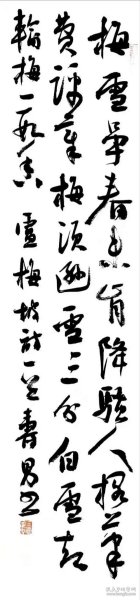 梅雪争春未肯降骚人搁笔
费评章梅须逊雪三分白雪却
输梅一段香 卢梅坡诗一首 寿男书